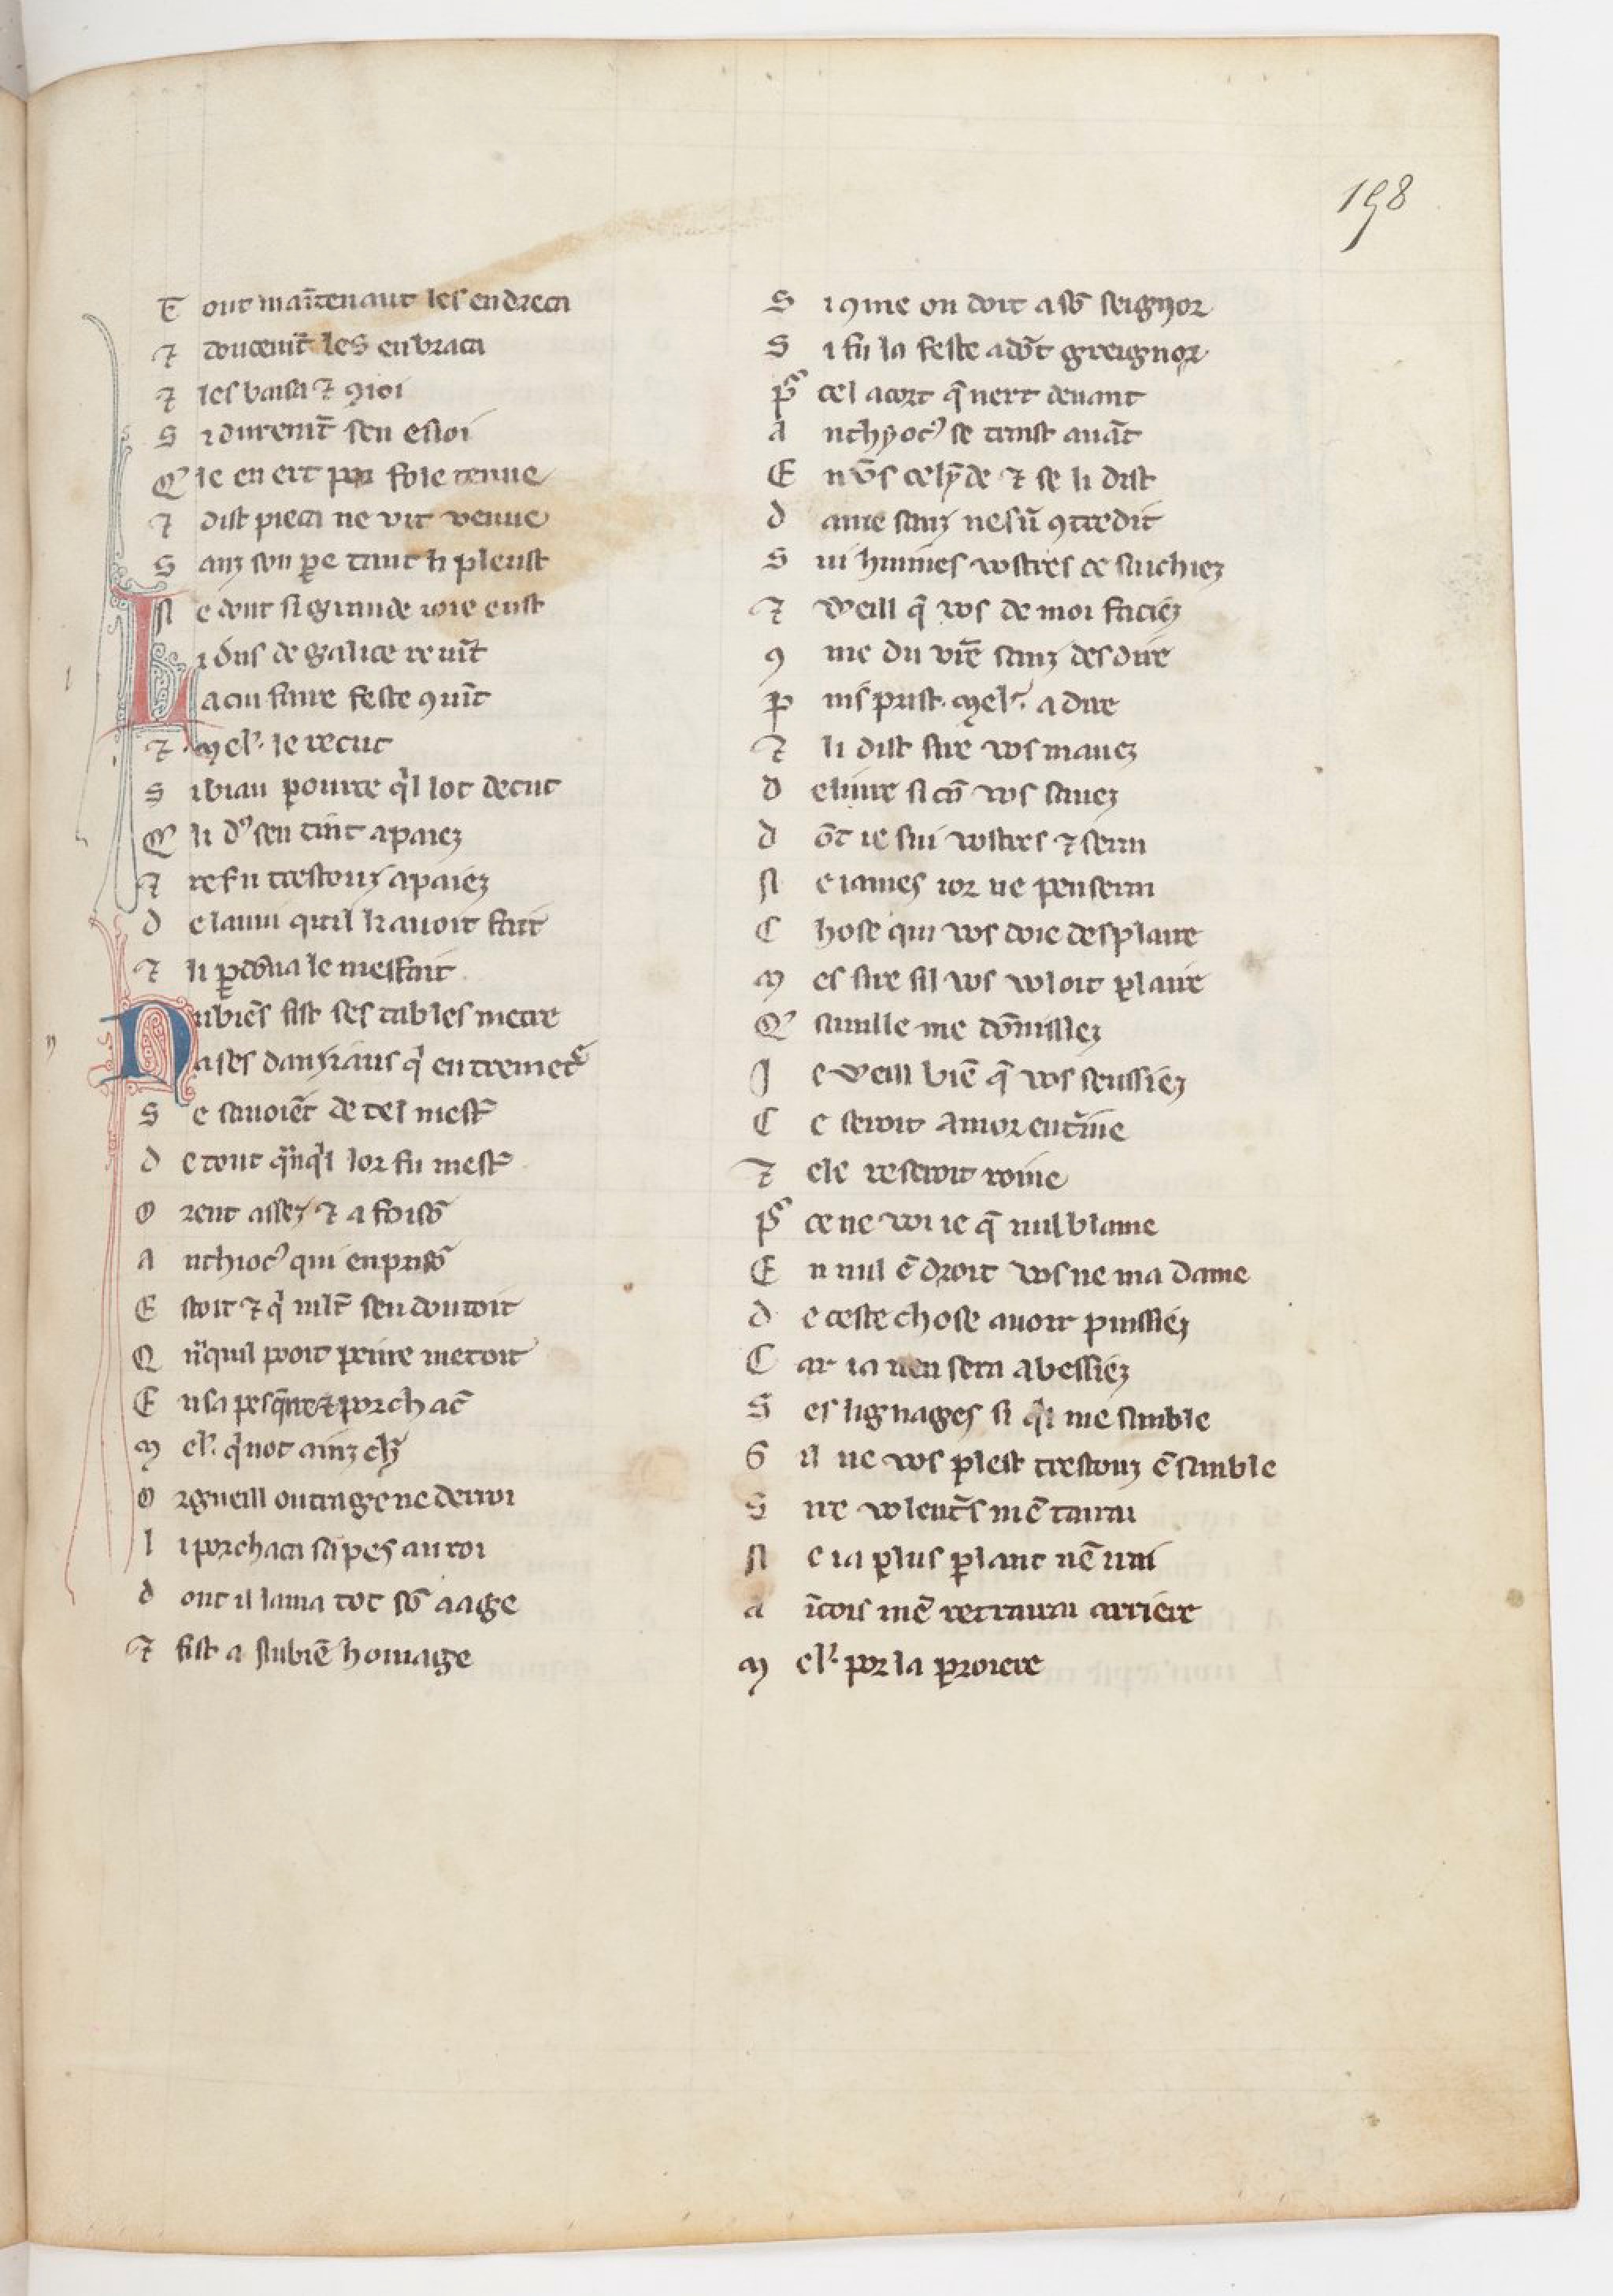 198
T out maītenant les endreca
⁊ doucemt̄ les enbraca
⁊ les baisa ⁊ ꝯioi
S i durement̄ sen esioi
Q̓le en ert por fole tenue
⁊ dist pieca ne vit venue
S anz son ꝑe tant li pleust
N e dont si grande ioie eust
L i dus de galice reuīt
L a cui faire feste ꝯuīt
⁊ mel'. le recut
S i biau pource q̓l lot decut
Q̓ li dꝰ sen tint apaiez
⁊ refu trestouz apaiez
D e lanui quil li auoit fait
⁊ li ꝑdōna le meffait
N ubiēs fist ses tables metre
A ses danziaus q̓ entremetᵉ
S e sauoiēt de tel mestᵉ̄
D e tout q̄nq̓l lor fu mestᵉ̄
O rent assez ⁊ a foisō
A nthiocꝰ qui en prisō
E stoit ⁊ q̓ mlt̄ sen doutoit
Q nquil pooit peine metoit
E n sa pes q̄rre ⁊ porchac̄
M el'. q̓ not ainz ch̄
O rgueill outrage ne derroi
L i porchaca sa pes au roi
D ont il lama tot sō aage
⁊ fist a nubiē homage
S i ꝯme on doit a sō seignor
S i fu la feste adōt greignor
P̓ cel acort q̄ nert deuant
A nthyocꝰ se traist auāt
E n v̄s celȳde ⁊ se li dist
D ame sanz nesū ꝯtredit
S ui huimes vostres ce sachiez
⁊ veill q̄ vos de moi faciez
ꝯ me du vr̄e sanz desdire
P uis prist. mel'. a dire
⁊ li dist sire vos mauez
D eliure si cō vos sauez
D ōt ie sui vostres ⁊ serai
N e iames ior ne penserai
C hose qui vos doie desplaire
M es sire sil vos voloit plaire
Q̓ samile me dōnissiez
J e veill biē q̄ vos seussiez
C e seroit amor entᵉrine
⁊ ele reseroit roine
P̓ ce ne voi ie q̄ nul blame
E n nul ēdroit vos ne ma dame
D e ceste chose auoir puissiez
C ar ia nen sera abessiez
S es lignages si q̓l me samble
S il ne vos plest trestouz ēsamble
S ire volentᵉ̄s mē tairai
N e ia plus ꝑlant nē irai
A īcois mē retrairai arriere
M el'. por la proiere